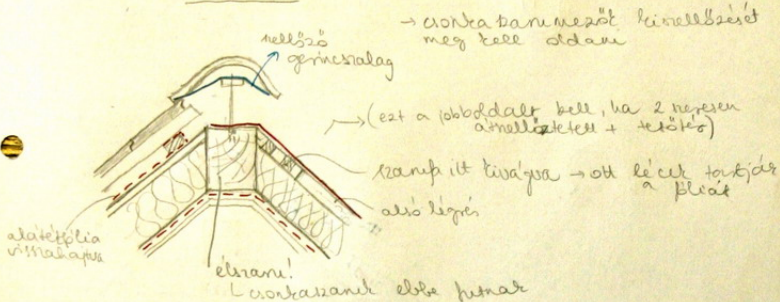 → csonkaszarumezők kiszellőzését
meg kell oldani
szellőző
gerincszalag
→ (ezt a jobboldalt kell, ha 2 szeresen
átszellőztetett + tetőtér)
szarufa itt kivágva → ott lécek tartják
a fóliát
alsó légrés
alátétfólia
visszahajtva
élszaru!
└ csonkaszaruk ebbe futnak